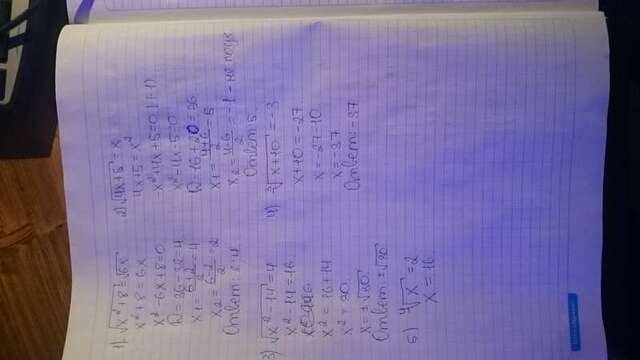 1) √x²+8 = √6x
x²+8=6x
x²-6x+8=0
D=36-32=4
x₁= 6+2/2 =4
x₂= 6-2/2 =2
Ответ: 2;4
2) √4x+5 =x
4x+5=x²
-x²+4x+5=0 |(-1)
x²-4x-5=0
D=16+20=36
x₁= 4+6/2 =5
x₂= 4-6/2 =-1 - не подх
Ответ 5
3) √x²-14 =4
x²-14=16
x²=16+14
x²=30
x=±√30
Ответ: ±√30
4) ³√x+10 =-3
x+10=-27
x=-27-10
x=-37
Ответ: -37
5) ⁴√x =2
x=16